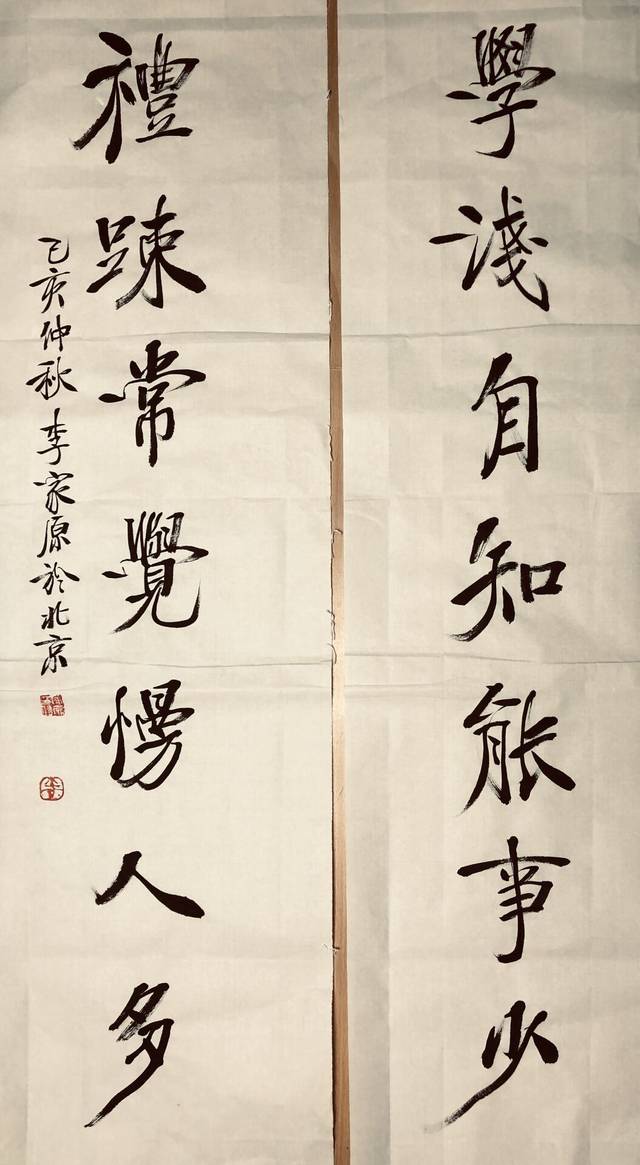 學淺自知能事少
禮踈常覺慢人多
己亥仲秋李家原於北京